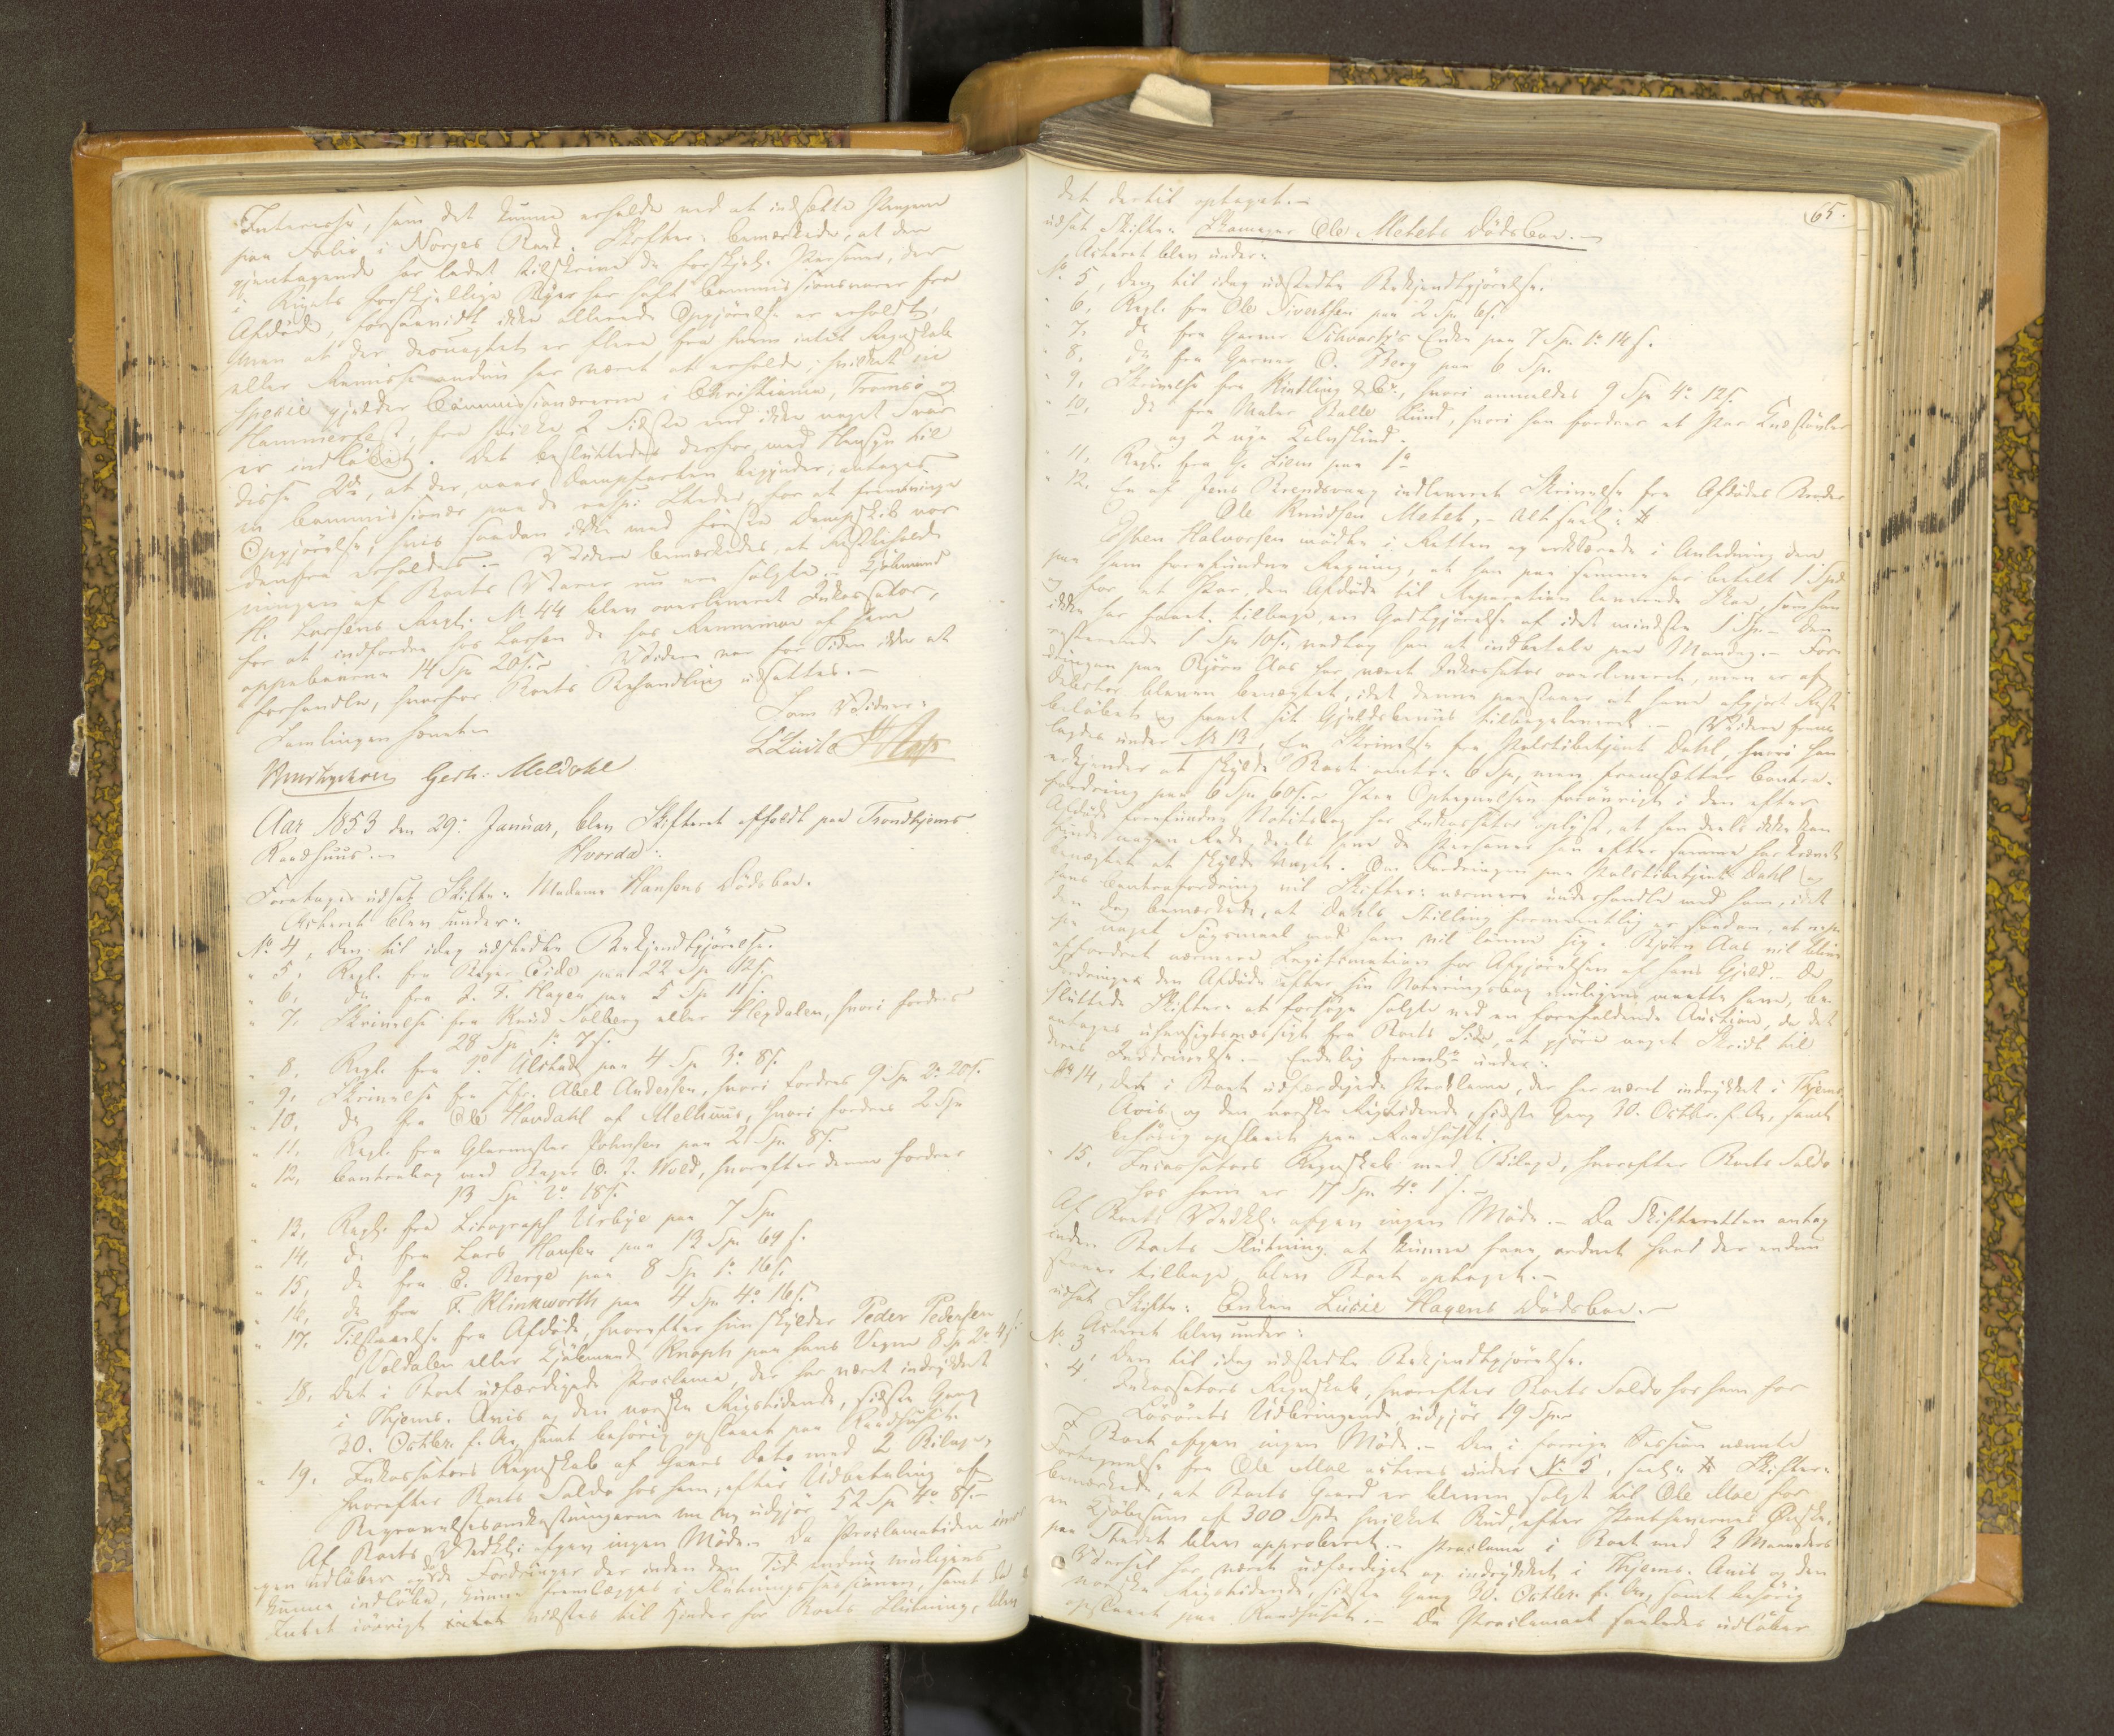 Interesse, som det kunne erholde ved at indsætte Pengene
paa Folio i Norges Bank. Skifter: bemærkede, at den
gjentagende har ladet tilskrive de forskjel: Personer, der
i Rigets forskjellige Byer har havt Commissionsvarer fra
Afdøde, forsaavidt ikke allerede Opgjørelse er erholdt,
men at der desuagtet er flere fra hvem intet Regnskab
eller Remisse endnu har været at erholde, hvilket in
specie gjelder Commissionærerne i Christiania, Tromsø og
Hammerfest, fra hvilke 2 Sidste end ikke noget Svar
er indløbet. Det besluttedes derfor med Hensyn til
disse 2de, at der, naar Dampfarten begynder, antages
en Commissionær paa de resp: Steder for at fremtvinge
Opgjørelse, hvis saadan ikke med første Dampskib
derfra erholdes.— Videre bemærkedes, at Restbehold-
ningen af Boets Varer nu ere solgte.— Kjøbmand
H. Larsens Regn. N. 44 blev overleveret Inkassator,
for at indfordre hos Larsen de hos af ham
oppebaarne 14 Sp 20 s. Videre var for Tiden ikke at
forhandle, hvorfor Boets Behandling udsattes.—
Samlingen hævet. Som Vidner:
Gerh: Meldahl L Lint
Aar 1853 den 29: Januar, blev Skifteret afholdt paa Trondhjems
Raadhuus.— Hvorda:
Foretages udsat Skifte: Madame Hansens Dødsboe.
Acteret blev under:
No 4, Den til idag udstedte Bekjendtgjørelse.
" 5, Regn. fra Bager Eide paa 22 Sp 12 s.
" 6, do fra J. F. Hagen paa 5 Sp 11 s.
" 7, Skrivelse fra Knud Solberg eller Hegdalen, hvori fordres
28 Sp 1: 7 s.
" 8, Regn. fra O. Ulstad paa 4 Sp 3: 8 s.
" 9, Skrivelse fra Jfr. Abel Andersen, hvori fordres 9 Sp 2: 20 s.
" 10, do fra Ole Hovdahl af Melhuus, hvori fordres 2 Sp
" 11, Regn. fra Glarmester Johnsen paa 2 Sp 8 s.
" 12, Contrabog med Bager O. J. Wold, hvorefter denne fordrer
13 Sp 2: 18 s.
" 13, Regn. fra Litograph Urbye paa 7 Sp
" 14, do fra Lars Hansen paa 13 Sp 64 s.
" 15, do fra E. Berge paa 8 Sp 1: 16 s.
" 16, do fra F. Klinkworth paa 4 Sp 4: 16 s.
" 17, Tilstaaelse fra Afdøde, hvorefter hun skylder Peder Pedersen
Noldalen eller Kjøbmand Knoph paa hans Vegne 8 Sp 2: 4 s.
" 18, Det i Boet udfærdigede Proclama, der har været indrykket
i Thjems. Avis og den norske Rigstidende, sidste Gang
30. Octbr. f. A., samt behørig opslaaet paa Raadhuset.
" 19, Inkassators Regnskab af Gaars Dato med 2 Bilage,
hvorefter Boets Saldo hos ham, efter Udbetaling af
Begravelsesomkostningerne udgjør 52 Sp 4: 8 s.—
Af Boets Vedk: afgav ingen Møde.— Da Proclamatiden imor-
gen udløber og de Fordringer der inden den Tid endnu muligens
kunne indløbe, kunne fremlægges i Slutningssessionen, samt da
Intet iøvrigt vidstes til Hinder for Boets Slutning, blev
65.
det dertil optaget.—
udsat Skifte: Skomager Ole Metets Dødsboe.—
Acteret blev under:
No 5, Den til idag udstedte Bekjendtgjørelse.
" 6, Regn. fra Ole Sivertsen paa 2 Sp 6 s.
" 7, do fra Garver Schwartz's Enke paa 7 Sp 1: 14 s.
" 8, do fra Garver O. Berg paa 6 Sp.
" 9, Skrivelse fra Kindling & Co, hvori anmeldes 9 Sp 4: 12 s.
" 10, do fra Maler Balle Lund, hvori han fordrer et Par Knæstøvler
og 2 nye Kalveskind.
" 11, Regn. fra G. Liem paa 1:
" 12, En af Jens Brendsvaag indleveret Skrivelse fra Afdødes Broder
Ole Knudsen Metet.— Alt saal:
Esten Halvorsen mødte i Retten og erklærede i Anledning den
paa ham forefundne Regning, at han paa samme har betalt 1 Spd
og for et Par, den Afdøde til Reparation leverede Skoe, som han
ikke har faaet tilbage, en Godtgjørelse af idet mindste 1 Sp.— Den
resterende 1 Sp 10 s, vedtog han at indbetale paa Mandag.— For-
dringen paa Bjørn Aas har været Inkassator overleveret, men er af
Debitor bleven benegtet, idet denne paastaaer at have afgjort Rest-
beløbet og faaet sit Gjeldsbeviis tilbageleveret.— Videre frem-
lagdes under No 13, En Skrivelse fra Politibetjent Dahl, hvori han
erkjender at skylde Boet omtr: 6 Sp, men fremsætter Contra-
fordring paa 6 Sp 60 s. Paa Optegnelsen forøvrigt i den efter
Afdøde forefundne Notitsbog har Inkassator oplyst, at han deels ikke kan
finde nogen Rede, deels have de Personer han efter samme har krævet
benegtet at skylde Noget. Om Fordringen paa Politibetjent Dahl og
hans Contrafordring vil Skifter: nærmere underhandle med ham, idet
den dog bemærkede, at Dahls Stilling formeentlig er saadan, at neppe
noget Søgsmaal mod ham vil lønne sig. Bjørn Aas vil blive
affordret nærmere Legitimation for Afgjørelsen af hans Gjeld.— De
Fordringer den Afdøde efter sin Noteringsbog muligens maatte have, be-
sluttede Skifteret at forsøge solgte ved en forefaldende Auction, da det
antages uhensigtsmæssigt fra Boets Side, at gjøre noget Skridt til
deres Inddrivelse.— Endelig fremlagdes under:
No 14, Det i Boet udfærdigede Proklama, der har været indrykket i Thjems
Avis og den norske Rigstidende, sidste Gang 30. Octbr. f. A., samt
behørig opslaaet paa Raadhuset.
" 15, Incassators Regnskab med Bilage, hvorefter Boets Saldo
hos ham er 17 Sp 4: 1 s.—
Af Boets Vedk: afgav ingen Møde.— Da Skifteretten antog
inden Boets Slutning at kunne faae ordnet hvad der endnu
staaer tilbage blev Boet optaget.—
udsat Skifte: Enken Lucie Hagens Dødsboe.—
Acteret blev under:
No 3, Den til idag udstedte Bekjendtgjørelse.
" 4, Inkassators Regnskab, hvorefter Boets Saldo hos ham for
Løsørets Udbringende udgjør 19 Sp
I Boet afgav ingen Møde.— Den i forrige Session nævnte
Fortegnelse fra Ole Moe acteres under No 5, saal: Skifter:
bemærkede, at Boets Gaard er bleven solgt til Ole Moe for
en Kjøbesum af 300 Spd hvilket Bud, efter Panthavernes Ønske,
paa Stedet blev approberet.— Proclama i Boet med 3 Maaneders
Varsel har været udfærdiget og indrykket i Thjems. Avis og den
norske Rigstidende, sidste Gang 30. Octbr. f. A., samt behørig
opslaaet paa Raadhuset.— Da Proclamaet saaledes udløber